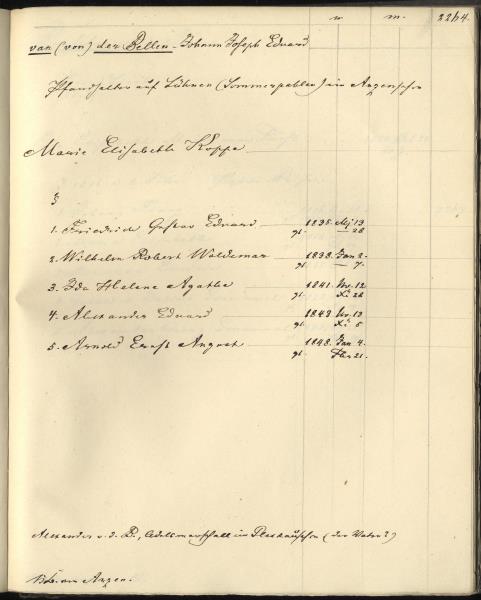 w. m. 2264.
van (von) der Bellen - Johann Joseph Eduard
Pfandhalter auf Lühnen (Sommerpahlen) im Anzenschen
Marie Elisabeth Koppe
1. Friedrich Gustav Eduard 1835. Mj 13
gt. — 28
2. Wilhelm Robert Woldemar 1838. Jan 2.
gt. — 7.
3. Ida Helene Agathe 1841. Nv. 12
gt. Xi 26
4. Alexander Eduard 1843 Nv. 13
gt. Xi 5
5. Arnold Ernst August 1848. Jan 4.
gt. Fbr 21.
Alexander v. d. B., Adelsmarschall im Pleskauschen (der Vater?)
Kb. von Anzen.